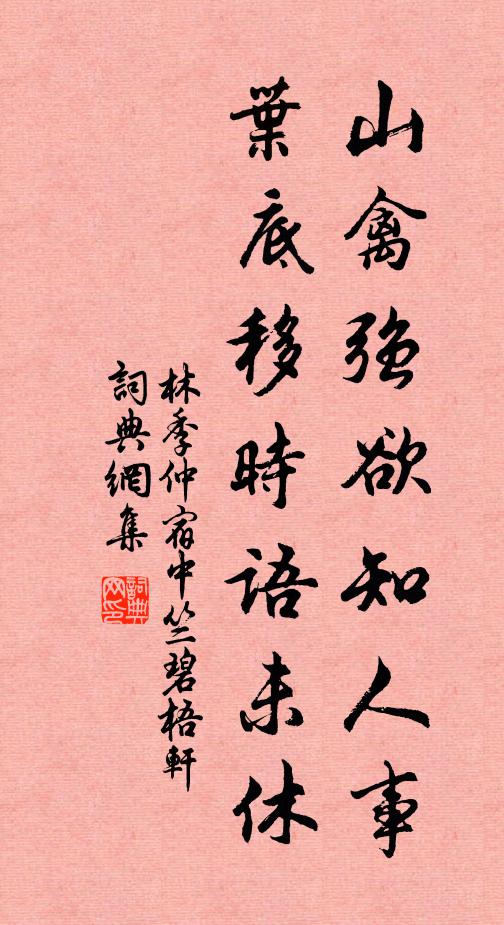 山禽強欲知人事
葉底移時語未休
林季仲宿中竺碧梧軒
詞典網集
詞典网印